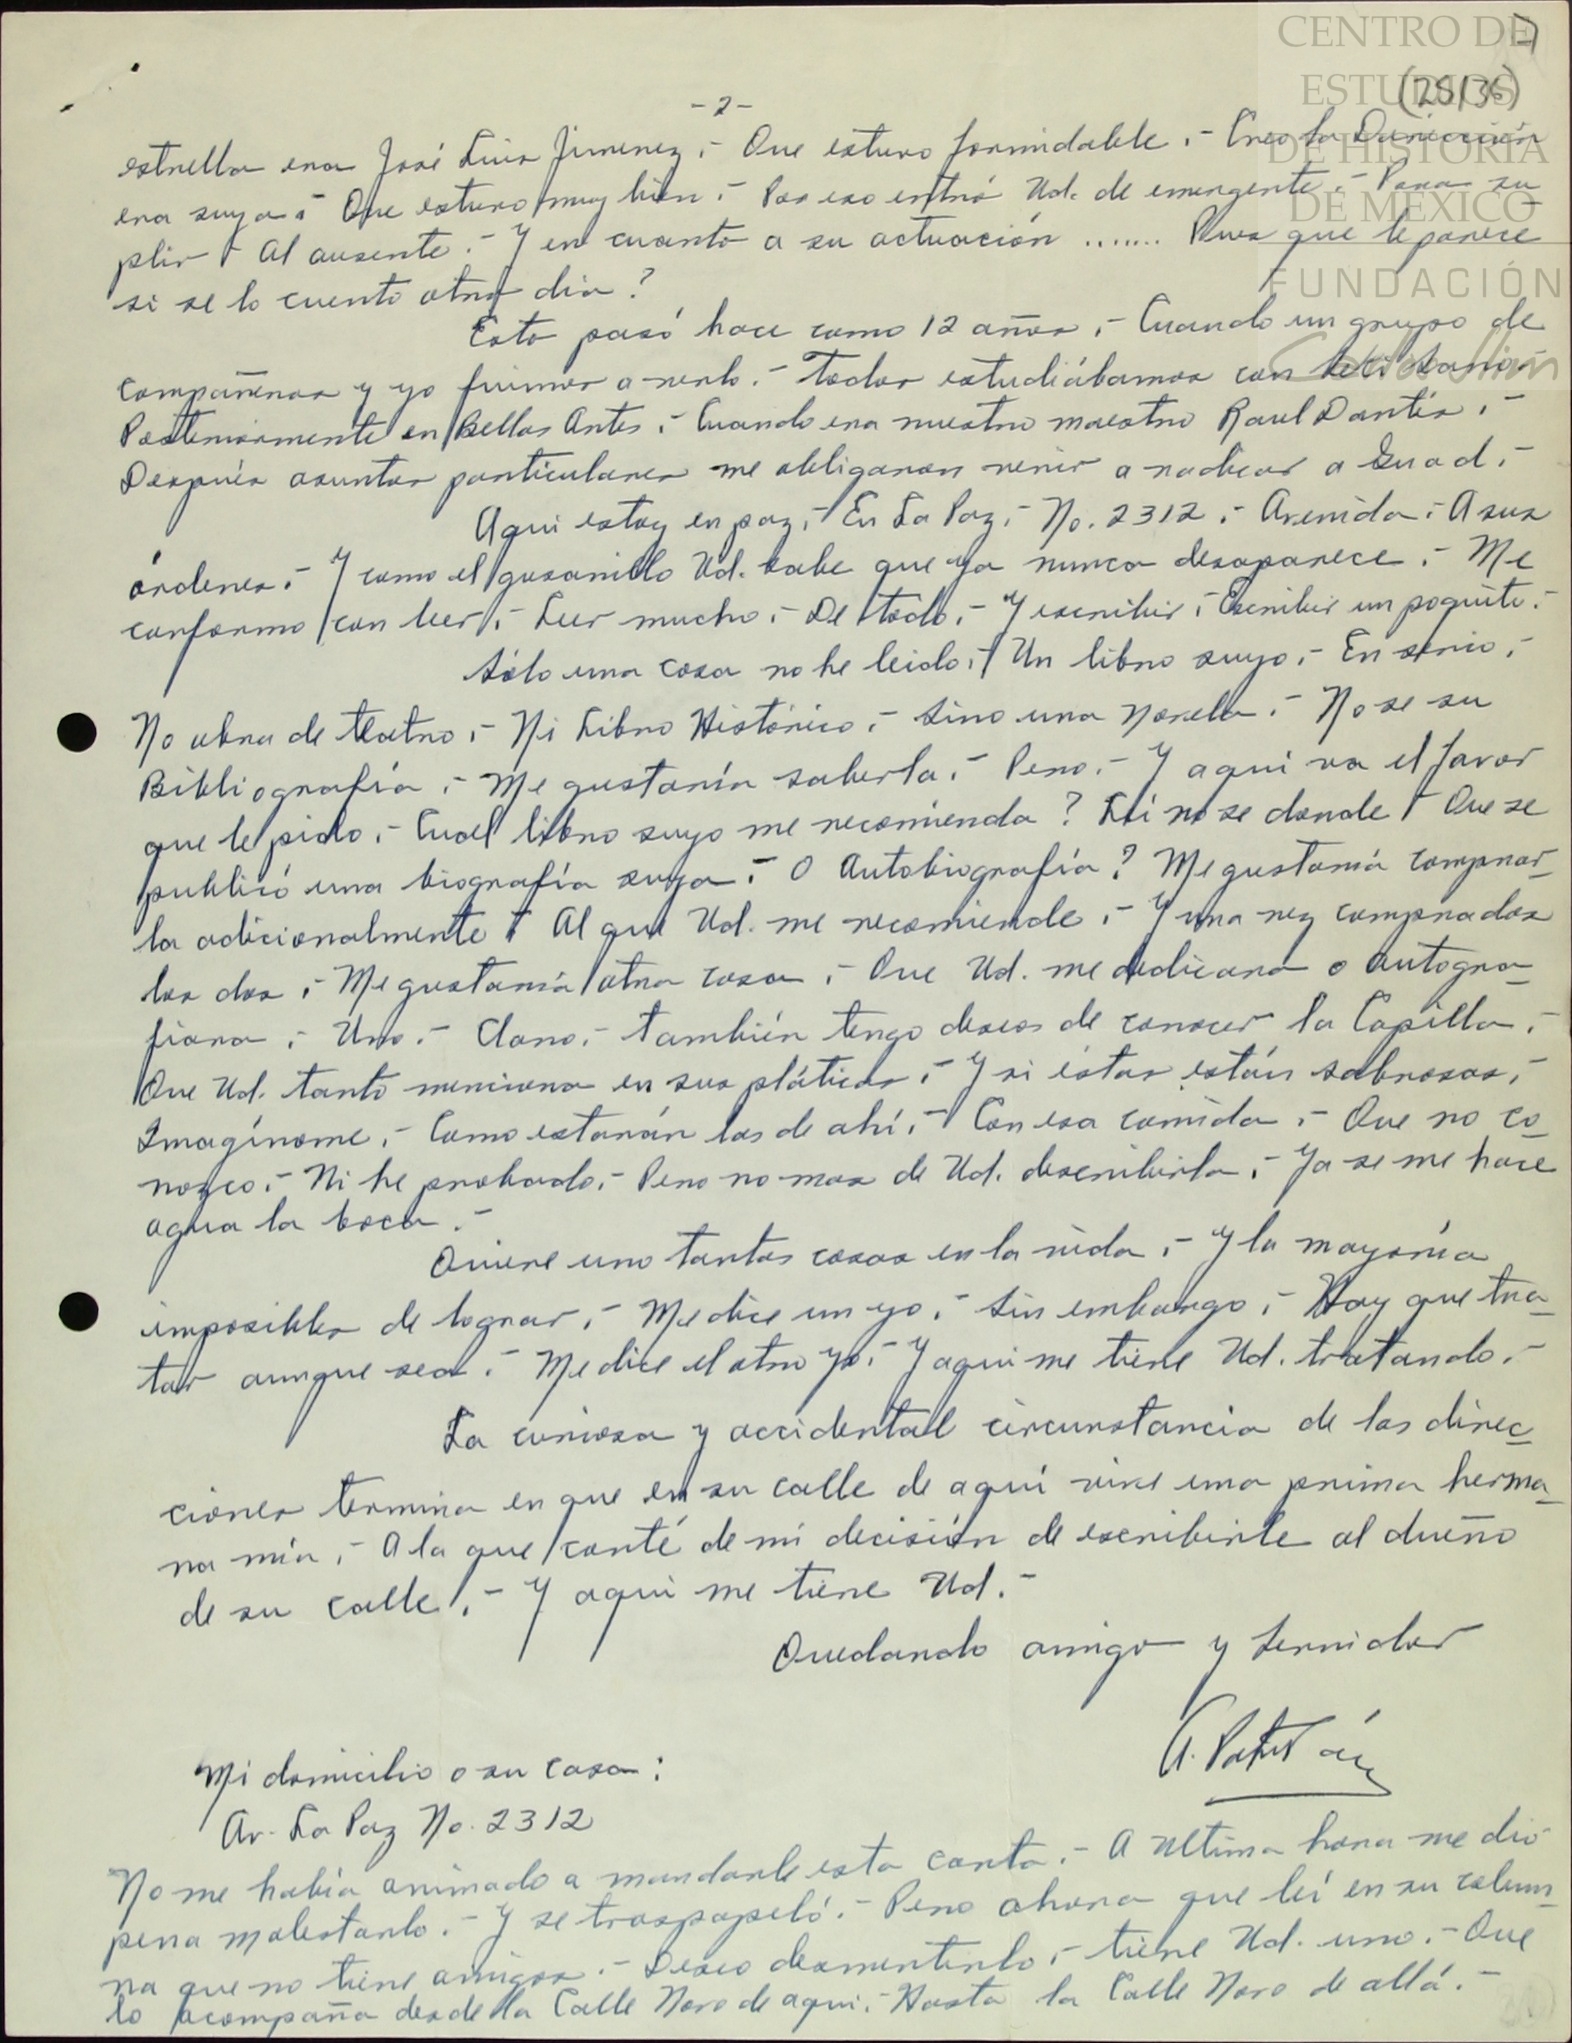 CENTRO DE
ESTUDIOS
DE HISTORIA
DE MÉXICO
FUNDACIÓN
Carlos Slim
(25/36)
-2-
estrella era José Luis Jimenez.- Que estuvo formidable.- Creo la Dirección
era suya.- Que estuvo muy bien.- Por eso entró Ud. de emergente.- Para su
plir Al ausente.- Y en cuanto a su actuación ....... Pues que le parece
si se lo cuento otro dia?
Esto pasó hace como 12 años.- Cuando un grupo de
compañeros y yo fuimos a verlo.- Todos estudiábamos con
Posteriormente en Bellas Artes.- Cuando era nuestro maestro Raul Dantés.-
Después asuntos particulares me obligaron venir a radicar a Guad.-
Aqui estoy en paz.- En La Paz.- No. 2312.- Avenida.- A sus
órdenes.- Y como el gusanillo Ud. sabe que ya nunca desaparece.- Me
conformo con leer.- Leer mucho.- De todo.- Y escribir.- Escribir un poquito.-
Sólo una cosa no he leido.- Un libro suyo.- En serio.-
No obra de teatro.- Ni Libro Histórico.- Sino una Novela.- No se su
Bibliografía.- Me gustaría saberla.- Pero.- Y aqui va el favor
que le pido.- Cual libro suyo me recomienda? Lei no se donde Que se
publicó una biografía suya.- O Autobiografía? Me gustaría comprar
la adicionalmente Al que Ud. me recomiende.- Y una vez comprados
los dos.- Me gustaría otra cosa.- Que Ud. me dedicara o autogra
fiara.- Uno.- Claro.- También tengo deseos de conocer la Capilla.-
Que Ud. tanto menciona en sus pláticas.- Y si éstas están sabrosas.-
Imagínome.- Como estarán las de ahí.- Con esa comida.- Que no co
nozco.- Ni he probado.- Pero no mas de Ud. describirla.- Ya se me hace
agua la boca.-
Quiere uno tantas cosas en la vida.- Y la mayoría
imposibles de lograr.- Me dice un yo.- Sin embargo.- Hay que tra
tar aunque sea.- Me dice el otro yo.- Y aqui me tiene Ud. tratando.-
La curiosa y accidental circunstancia de las direc
ciones termina en que en su calle de aquí vive una prima herma
na mía.- A la que conté de mi decisión de escribirle al dueño
de su calle.- Y aqui me tiene Ud.-
Quedando amigo y servidor
Mi domicilio o su casa:
Av. La Paz No. 2312
No me había animado a mandarle esta carta.- A última hora me dió
pena molestarlo.- Y se traspapeló.- Pero ahora que leí en su colum
na que no tiene amigos.- Deseo desmentirlo.- Tiene Ud. uno.- Que
lo acompaña desde la Calle Novo de aqui.- Hasta la Calle Novo de allá.-